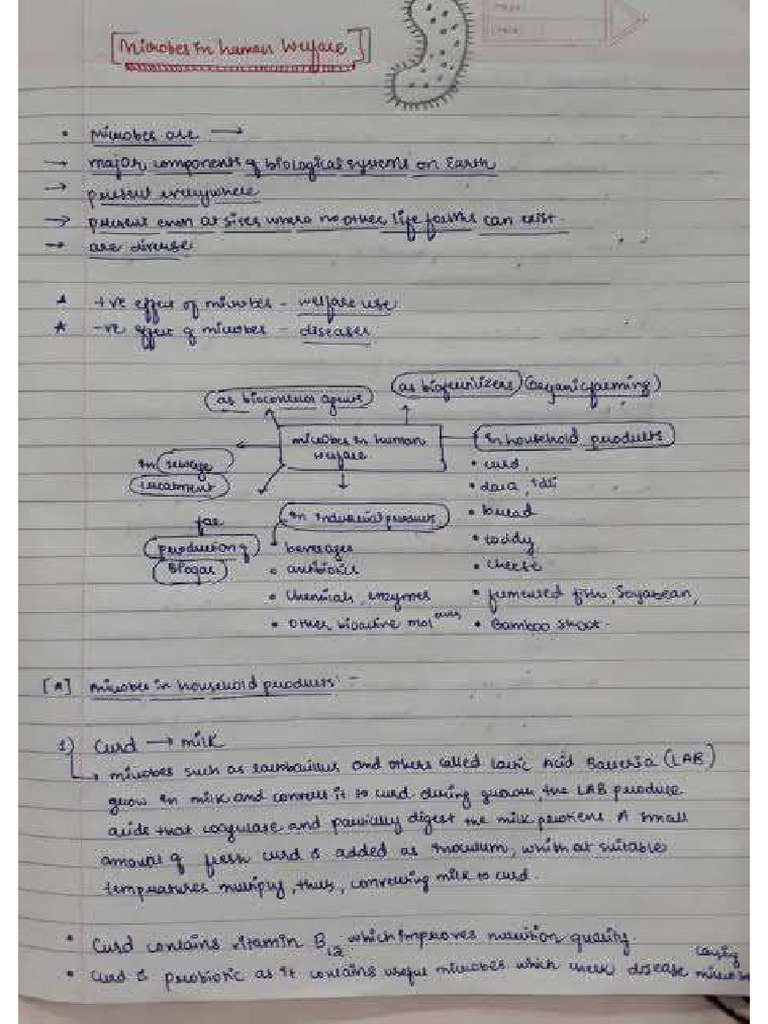 [Microbes in human welfare]
• Microbes are →
→ major components of biological systems on Earth
→ present everywhere
→ present even at sites where no other life forms can exist.
→ are diverse
★ +ve effect of microbes - welfare use
★ -ve effect of microbes - diseases
as biocontrol agents
(as biofertilizers) (Organic farming)
microbes in human
welfare
in household products
in sewage
treatment
• curd,
• dosa, idli
• bread
• toddy
• cheese
• fermented fish, Soyabean,
• Bamboo shoot.
for
production of
Biogas
in industrial products
beverages
• antibiotics
• chemicals, enzymes
• other bioactive molecules
[A] microbes in household products :-
1) Curd → milk
• microbes such as lactobacillus and others called Lactic Acid Bacteria (LAB)
grow in milk and convert it to curd. during growth, the LAB produce
acids that coagulate and partially digest the milk proteins. A small
amount of fresh curd is added as inoculum, which at suitable
temperatures multiply, thus, converting milk to curd.
• Curd contains vitamin B12 which improves nutrition quality.
• curd is probiotic as it contains useful microbes which check disease causing